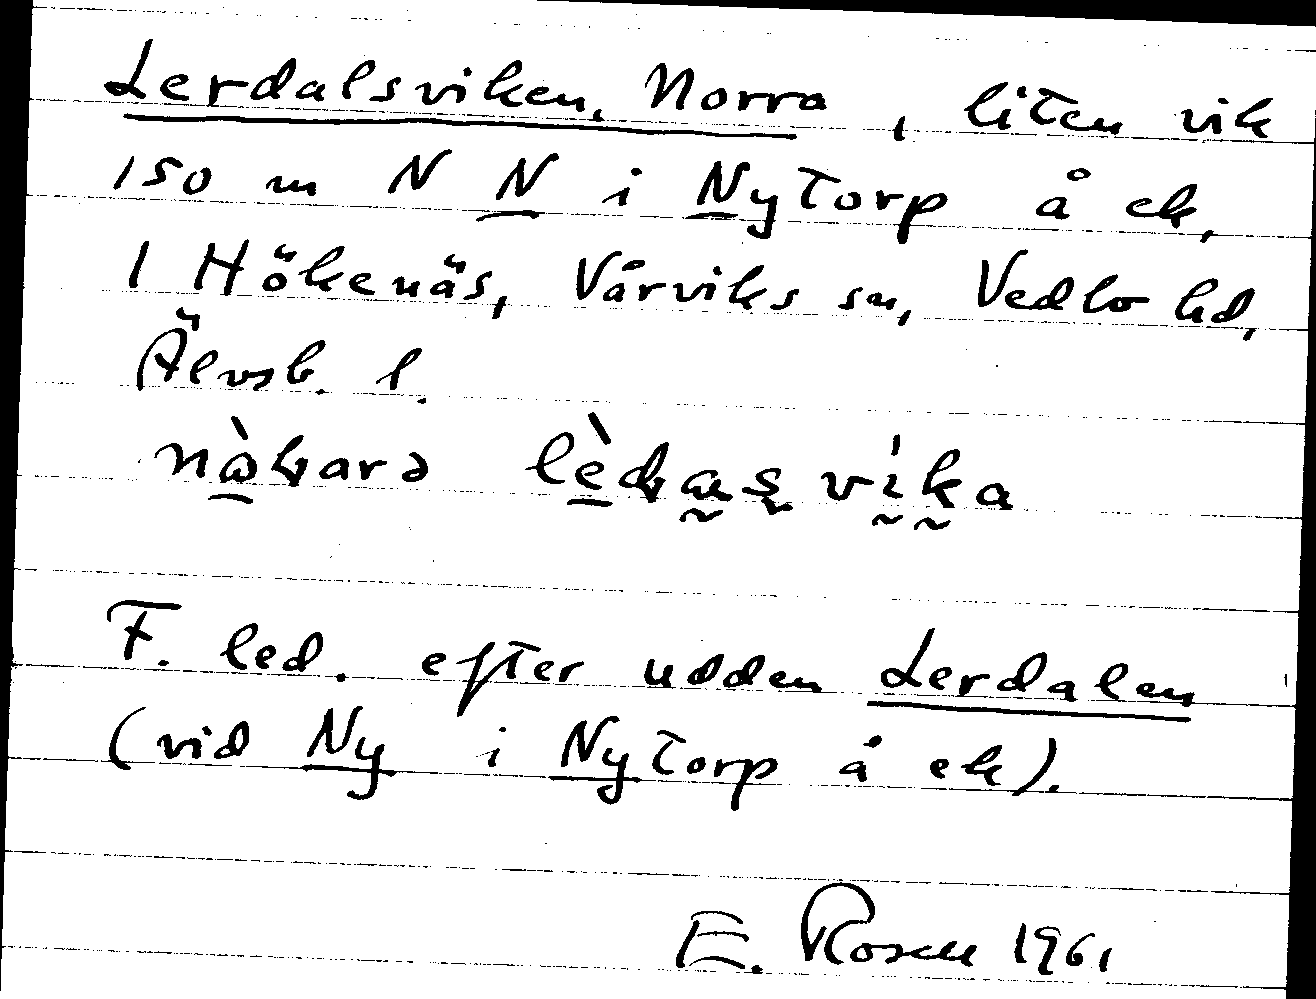 Lerdalsviken, Norra, liten vik
150 m N N i Nytorp å ek,
1 Hökenäs, Vårviks sn, Vedbo hd,
Älvsb. l.
F. led. efter udden Lerdalen
(vid Ny i Nytorp å ek).
E. Rosen 1961